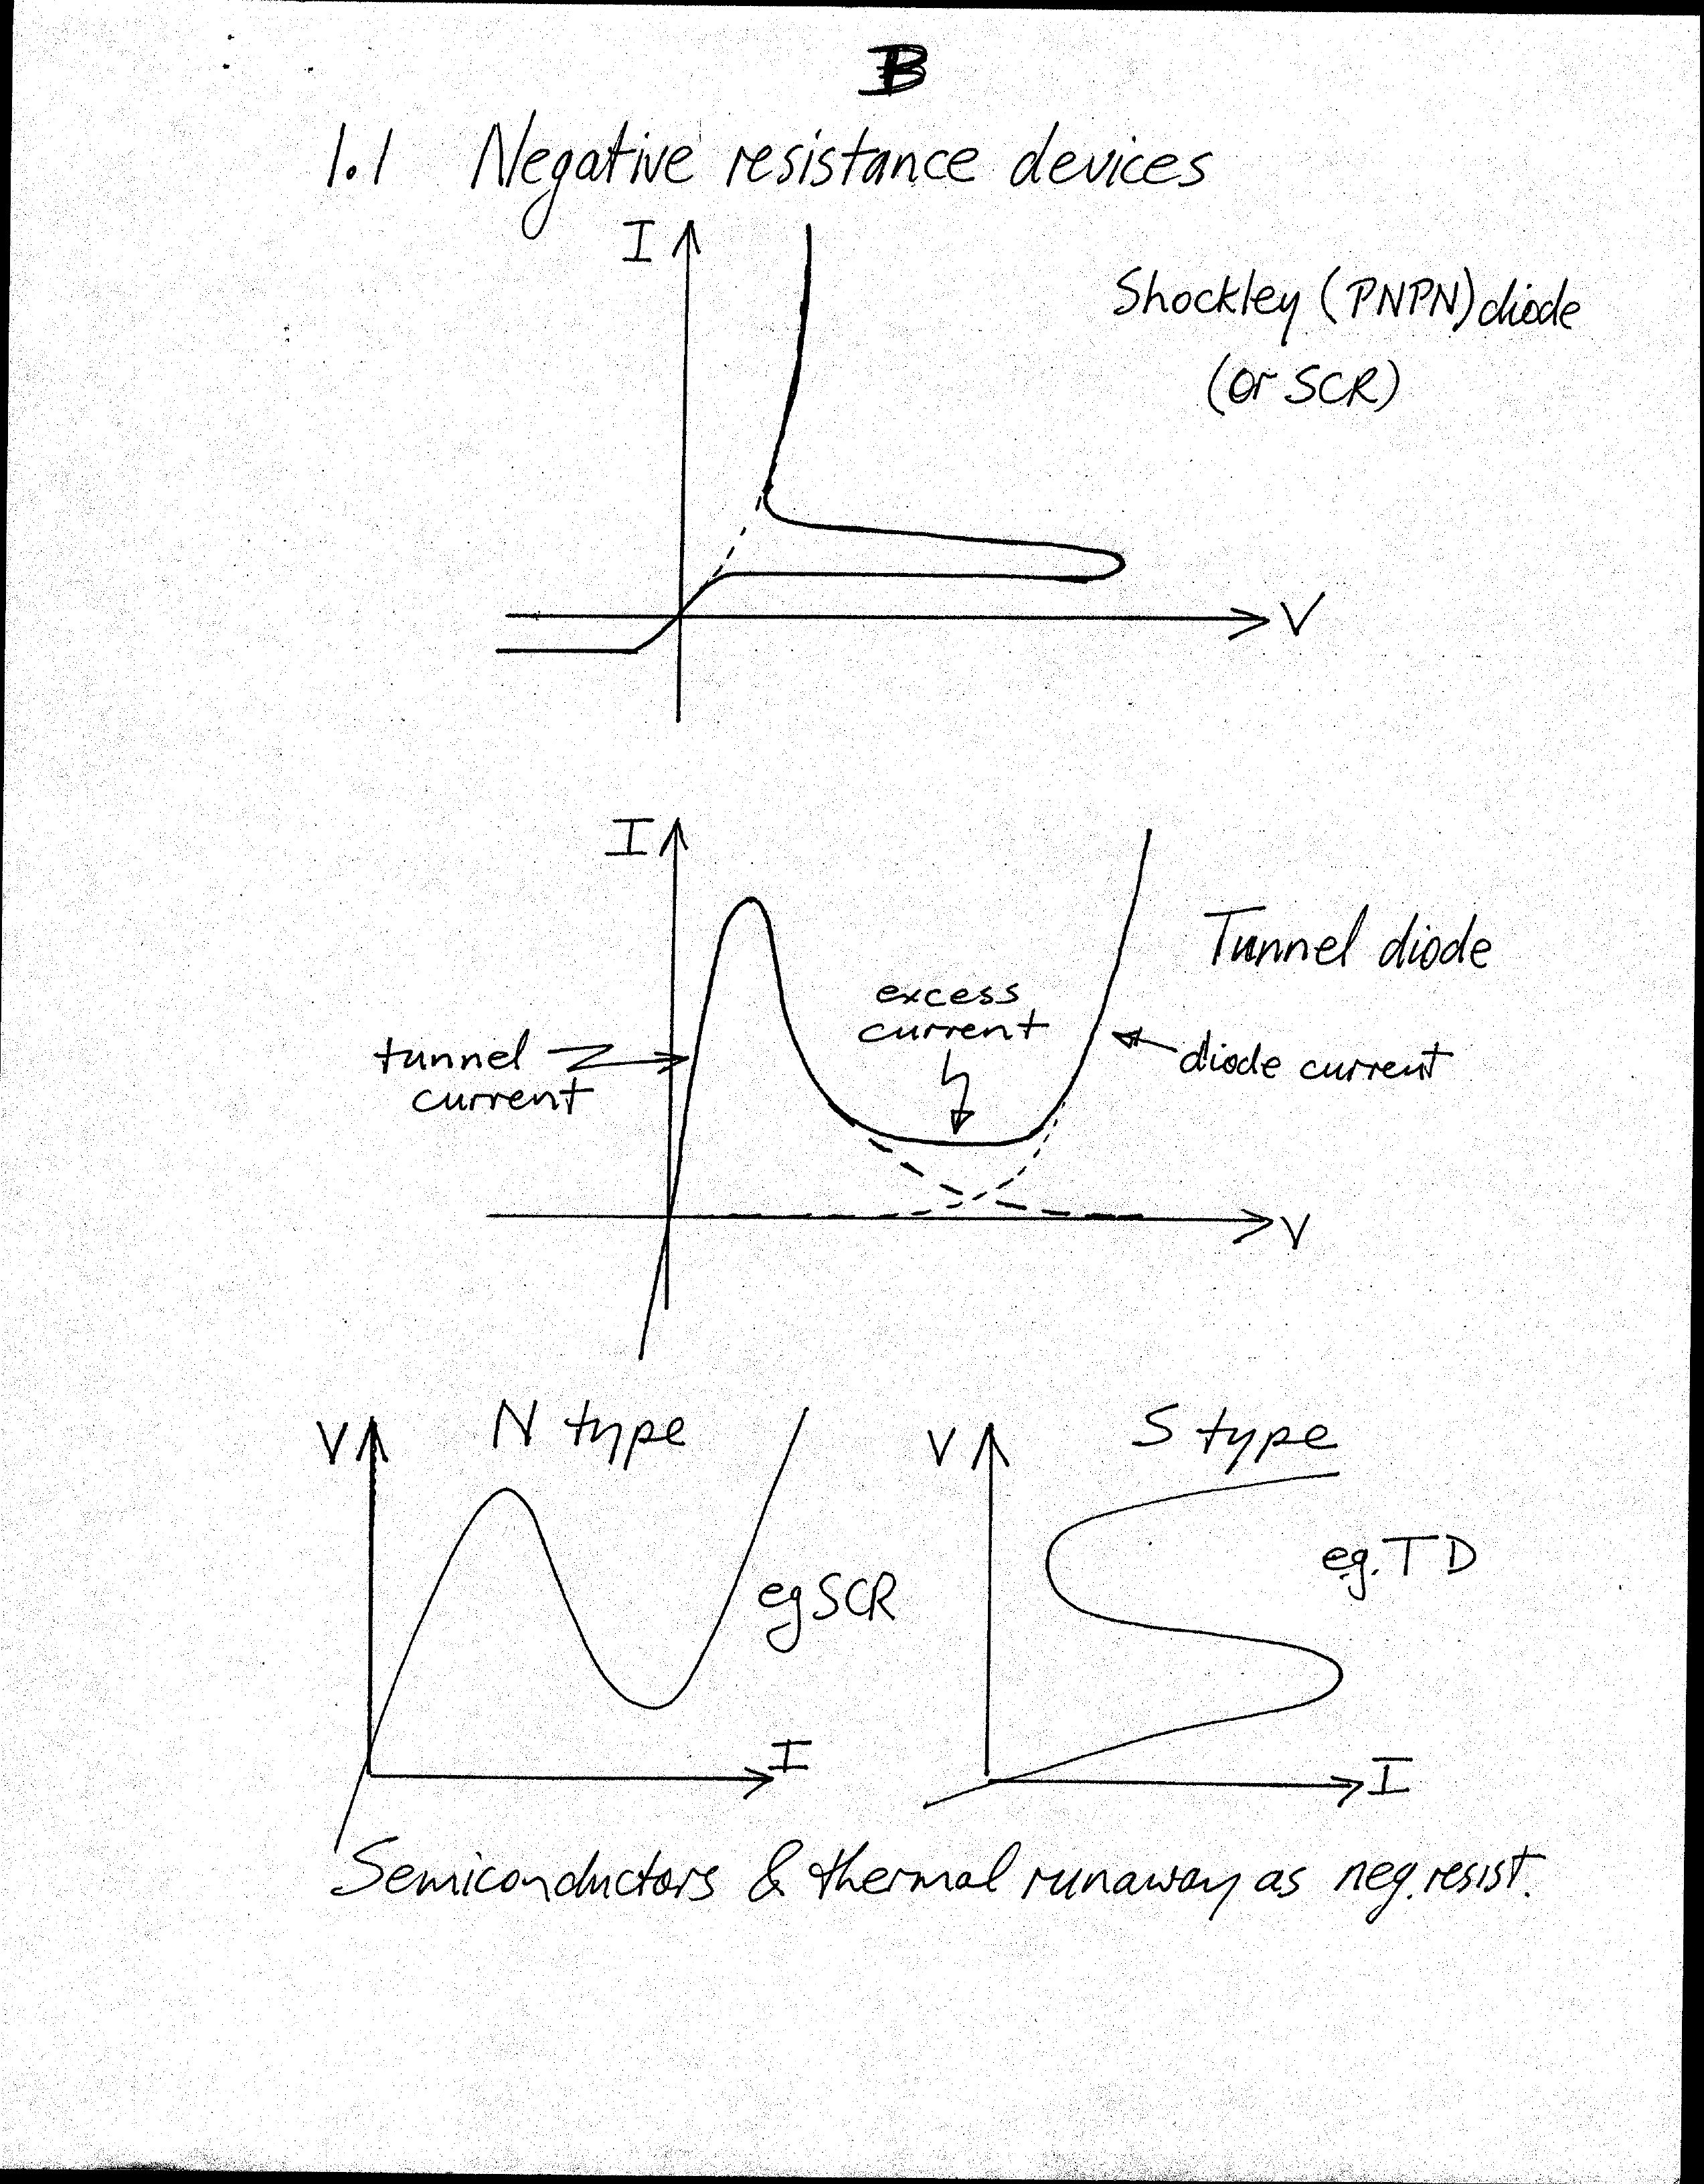 B
1.1 Negative resistance devices
I
Shockley (PNPN) diode
(or SCR)
V
I
Tunnel diode
excess
current
tunnel
current
diode current
V
V
N type
eg SCR
I
V
S type
eg. TD
I
Semiconductors & thermal runaway as neg. resist.